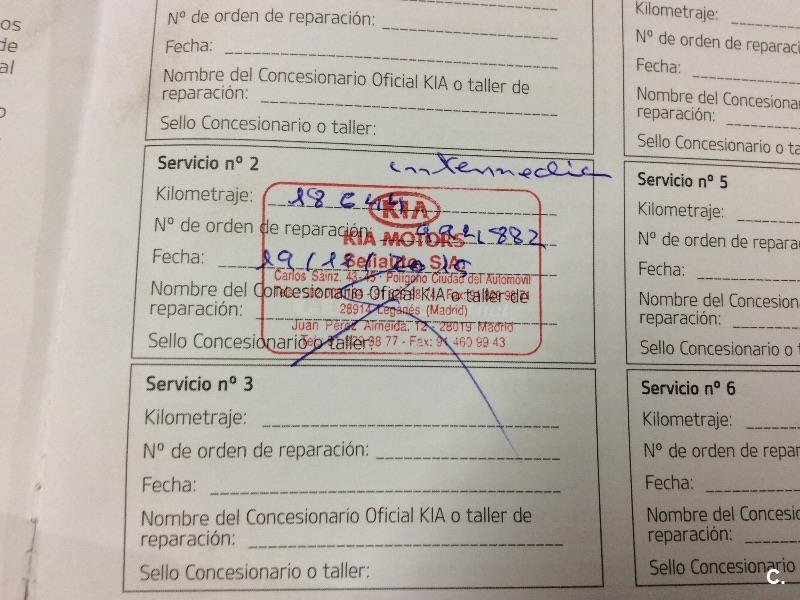 os
de
al
o
Nº de orden de reparación:
Fecha:
Nombre del Concesionario Oficial KIA o taller de
reparación:
Sello Concesionario o taller:
Servicio nº 2
intermedia
Kilometraje: 18644
Nº de orden de reparación:
Fecha: 19/
Nombre del Concesionario Oficial KIA o taller de
reparación:
Sello Concesionario o taller:
KIA
KIA MOTORS
S.A.
Carlos Sainz, 43-45 - Polígono Ciudad del Automóvil
28914 Leganés (Madrid)
Juan Pérez Almeida, 12 - 28019 Madrid
98 77 - Fax: 91 460 99 43
Servicio nº 3
Kilometraje:
Nº de orden de reparación:
Fecha:
Nombre del Concesionario Oficial KIA o taller de
reparación:
Sello Concesionario o taller:
Kilometraje:
Nº de orden de reparaci
Fecha:
Nombre del Concesiona
reparación:
Sello Concesionario o ta
Servicio nº 5
Kilometraje:
Nº de orden de repara
Fecha:
Nombre del Concesion
reparación:
Sello Concesionario o t
Servicio nº 6
Kilometraje:
Nº de orden de repar
Fecha:
Nombre del Concesio
reparación:
Sello Concesionario
c.